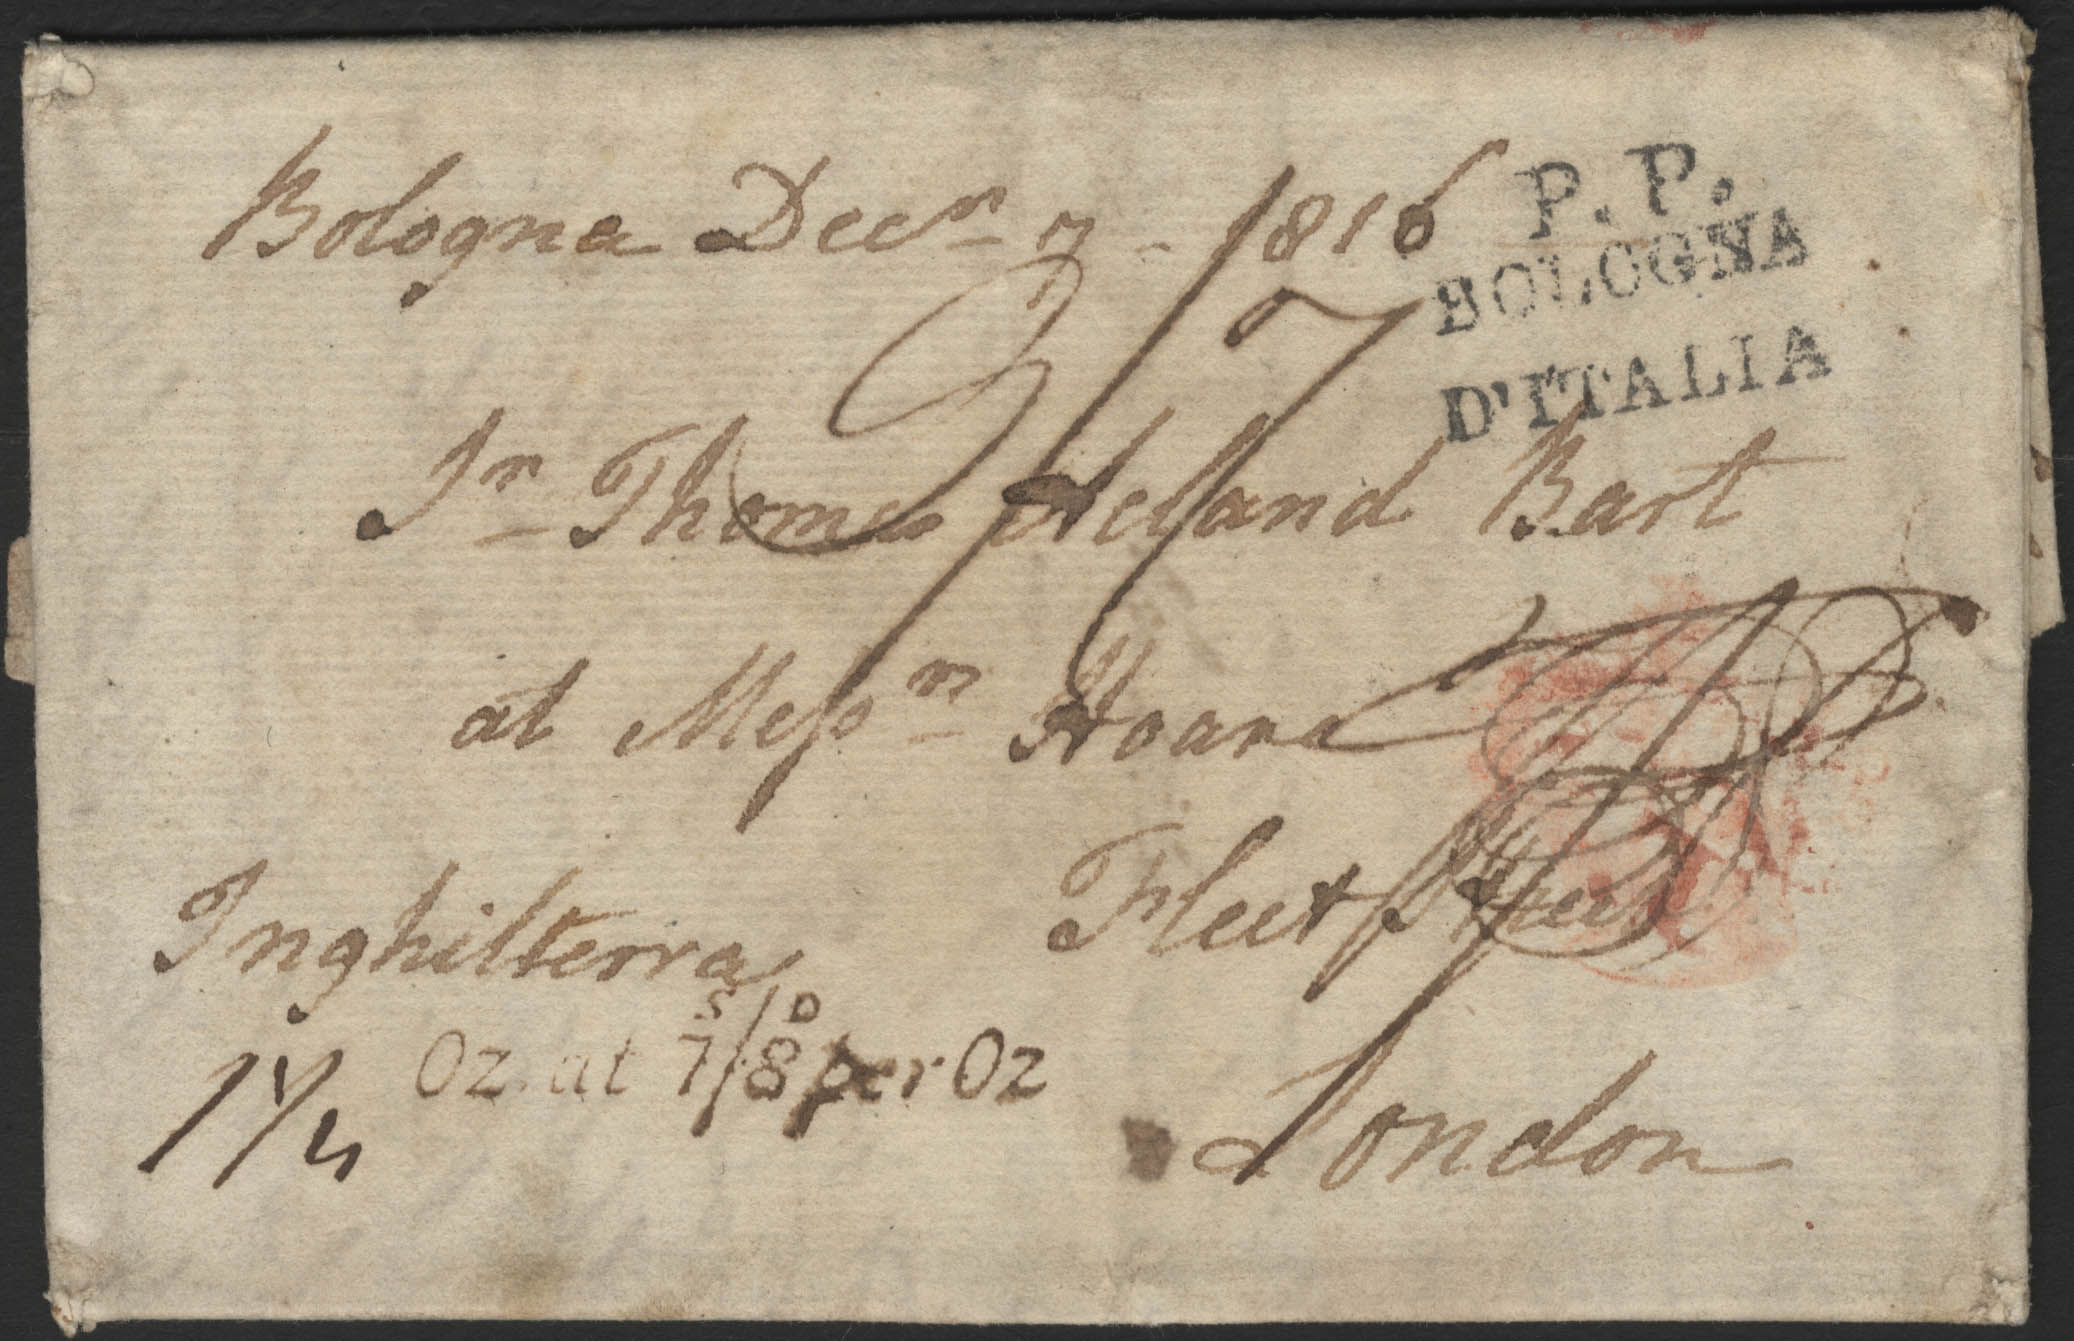 Bologna Decr 7 - 1816
P. P.
BOLOGNA
D'ITALIA
9/7
Sr Thomas Acland Bart
at Messrs Hoare
Fleet Street
Inghilterra
London
S/D
1 1/4 Oz. at 7/8 per Oz